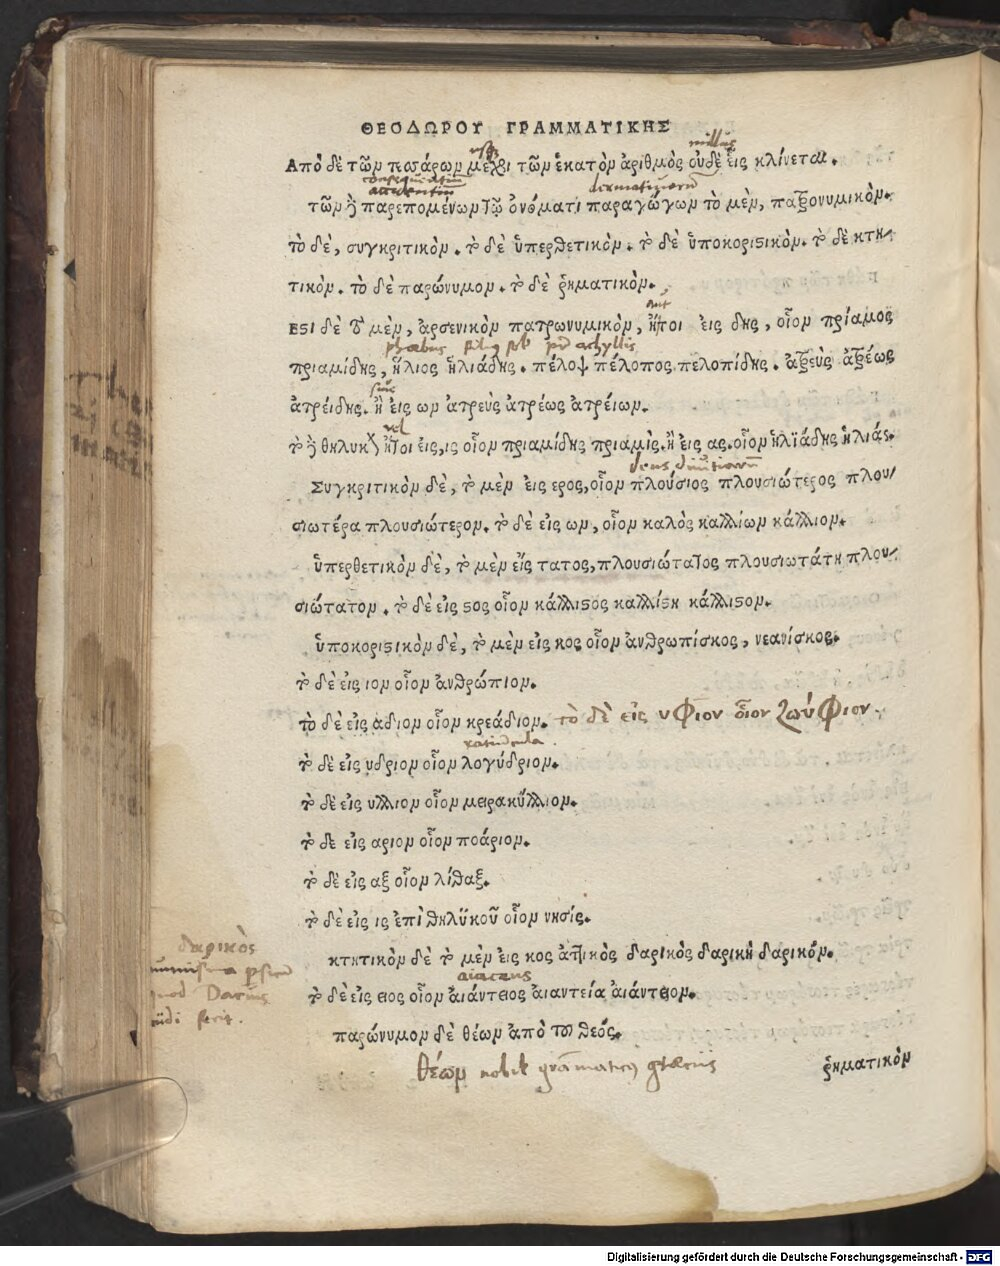 ΘΕΟΔΩΡΟΥ ΓΡΑΜΜΑΤΙΚΗΣ
nullus
Από δὲ τῶν τεσσάρων μέχρι τῶν ἑκατὸν ἀριθμὸς οὐδὲ εἷς κλίνεται.
τῶν δὲ παρεπομένων τῷ ὀνόματι παραγώγων τὸ μὲν, πατρονυμικὸν.
τὸ δὲ, συγκριτικὸν. τὸ δὲ ὑπερθετικὸν. τὸ δὲ ὑποκοριστικὸν. τὸ δὲ κτη-
τικὸν. τὸ δὲ παρώνυμον. τὸ δὲ ῥηματικὸν.
aut
ΕΣΤΙ δὲ τὸ μὲν, ἀρσενικὸν πατρωνυμικὸν, ἤτοι εἰς δης, οἷον πρίαμος
phœbus filius achyllis
πριαμίδης, ἥλιος ἡλιάδης. πέλοψ πέλοπος πελοπίδης. ἀτρεὺς ἀτρέως
ἀτρείδης. ἢ εἰς ων ἀτρεὺς ἀτρέως ἀτρείων.
vel
τὸ δὲ θηλυκὸν ἤτοι εἰς, ις οἷον πριαμίδης πριαμὶς. ἢ εἰς ας. οἷον ἡλϊάδης ἡλιάς.
Συγκριτικὸν δὲ, τὸ μὲν εἰς ερος, οἷον πλούσιος πλουσιώτερος πλου-
σιωτέρα πλουσιώτερον. τὸ δὲ εἰς ων, οἷον καλὸς καλλίων κάλλιον.
ὑπερθετικὸν δὲ, τὸ μὲν εἰς τατος, πλουσιώτατος πλουσιωτάτη πλου-
σιώτατον. τὸ δὲ εἰς στος οἷον κάλλιστος καλλίστη κάλλιστον.
ὑποκοριστικὸν δὲ, τὸ μὲν εἰς κος οἷον ἀνθρωπίσκος, νεανίσκος.
τὸ δὲ εἰς ιον οἷον ἀνθρώπιον.
τὸ δὲ εἰς αδιον οἷον κρεάδιον. τὸ δὲ εἰς υφιον οἷον ζωύφιον.
τὸ δὲ εἰς υδριον οἷον λογύδριον.
τὸ δὲ εἰς υλλιον οἷον μειρακΰλλιον.
τὸ δὲ εἰς αριον οἷον ποάριον.
τὸ δὲ εἰς αξ οἷον λίθαξ.
τὸ δὲ εἰς ις ἐπὶ θηλϋκοῦ οἷον νησίς.
δαρικὸς
κτητικὸν δὲ τὸ μὲν εἰς κος ἀττικὸς δαρικὸς δαρικὴ δαρικόν.
quod Darius
τὸ δὲ εἰς ειος οἷον αἰάντειος αἰαντεία αἰάντειον.
παρώνυμον δὲ θέων ἀπὸ τοῦ θεός.
θέων
ῥηματικὸν
Digitalisierung gefördert durch die Deutsche Forschungsgemeinschaft - DFG